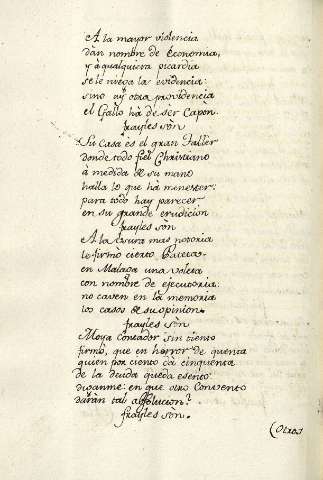 A la mayor violencia
dàn nombre de Economia,
y à qualquiera picardia
se le niega la evidencia:
sino ay otra providencia
el Gallo hà de ser Capon.
frayles sòn
Su Casa es el gran Taller
donde todo fiel Christiano
à medida de su mano
halla lo que hà menester:
para todo hay parecer
en su grande erudicion
frayles sòn
A la usura mas notoria
le firmò cierto
en Malaga una
con nombre de executoria:
no caven en la memoria
los casos de su opinion.
frayles sòn
Moya Contador sin tiento
firmò, que en horror de quenta
quien por ciento dà cinquenta
de la deuda queda esento:
diganme: en que otro Convento
daràn tal absolucion?
frayles sòn.
(Otra)